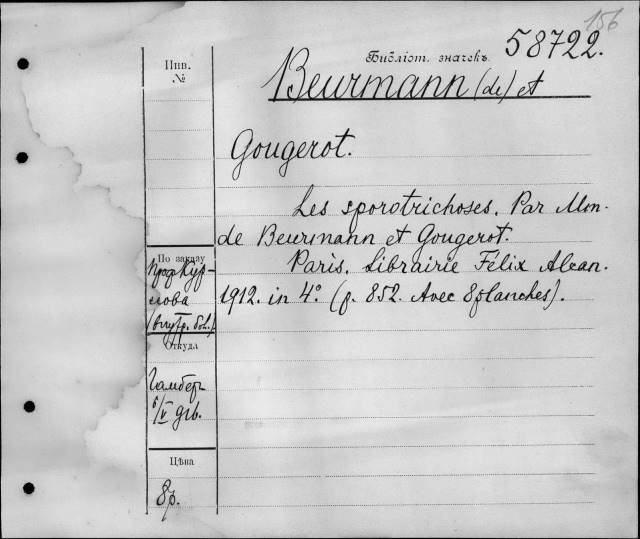 156
Инв.
№
Библіот. значекъ
58722.
Beurmann (de) et
Gougerot.
Les sporotrichoses. Par Mon-
de Beurmann et Gougerot.
Paris. Librairie Félix Alcan.
1912. in 4°. (p. 852. Avec 8 planches).
По заказу
Проф. Кур-
лова
(внутр. бол.)
Откуда
6/V 916.
Цѣна
8р.